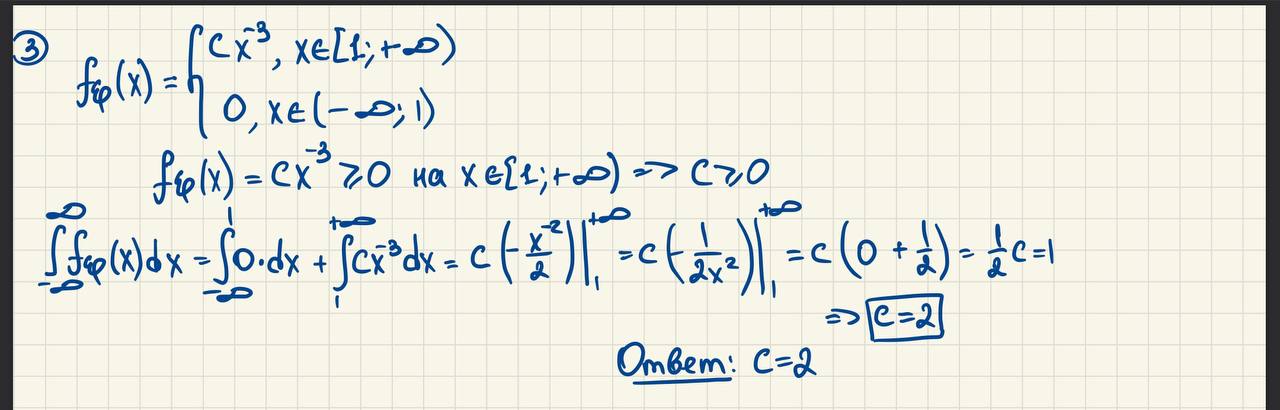 ③ f_φ(x) = { Cx⁻³, x∈[1;+∞)
0, x∈(-∞;1)
f_φ(x) = Cx⁻³ ⩾ 0 на x∈[1;+∞) => C ⩾ 0
∫_{-∞}^{∞} f_φ(x)dx = ∫_{-∞}^{1} 0·dx + ∫_{1}^{+∞} Cx⁻³dx = C(-x⁻²/2)|_{1}^{+∞} = C(-1/(2x²))|_{1}^{+∞} = C(0 + 1/2) = 1/2 C = 1
=> C=2
Ответ: C=2